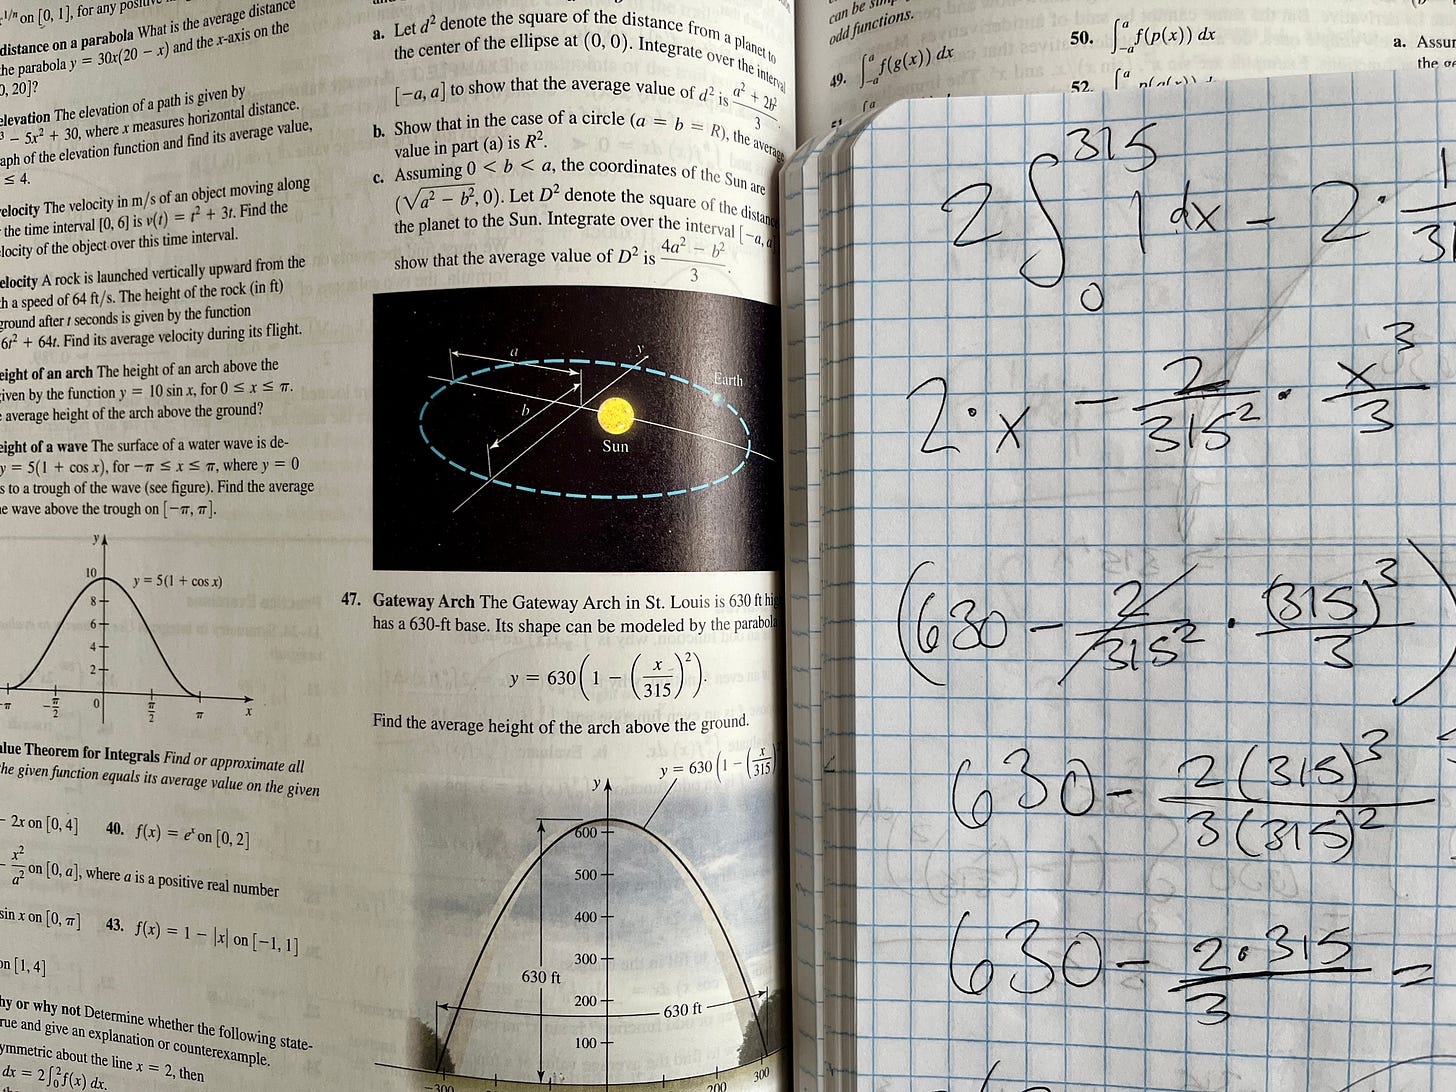 1/n on [0, 1], for any
distance on a parabola What is the average distance
the parabola y = 30x(20 − x) and the x-axis on the
0, 20]?
elevation The elevation of a path is given by
3 − 5x² + 30, where x measures horizontal distance.
aph of the elevation function and find its average value,
≤ 4.
velocity The velocity in m/s of an object moving along
the time interval [0, 6] is v(t) = t² + 3t. Find the
locity of the object over this time interval.
elocity A rock is launched vertically upward from the
h a speed of 64 ft/s. The height of the rock (in ft)
ground after t seconds is given by the function
6t² + 64t. Find its average velocity during its flight.
eight of an arch The height of an arch above the
iven by the function y = 10 sin x, for 0 ≤ x ≤ π.
average height of the arch above the ground?
eight of a wave The surface of a water wave is de-
y = 5(1 + cos x), for −π ≤ x ≤ π, where y = 0
s to a trough of the wave (see figure). Find the average
e wave above the trough on [−π, π].
y
10
y = 5(1 + cos x)
8
6
4
2
−π −π/2 0 π/2 π x
alue Theorem for Integrals Find or approximate all
he given function equals its average value on the given
− 2x on [0, 4] 40. f(x) = eˣ on [0, 2]
− x²/a² on [0, a], where a is a positive real number
sin x on [0, π] 43. f(x) = 1 − |x| on [−1, 1]
on [1, 4]
hy or why not Determine whether the following state-
rue and give an explanation or counterexample.
ymmetric about the line x = 2, then
dx = 2∫₀² f(x) dx.
a. Let d² denote the square of the distance from a planet to
the center of the ellipse at (0, 0). Integrate over the interval
[−a, a] to show that the average value of d² is (a² + 2b²)/3.
b. Show that in the case of a circle (a = b = R), the average
value in part (a) is R².
c. Assuming 0 < b < a, the coordinates of the Sun are
(√(a² − b²), 0). Let D² denote the square of the distance
the planet to the Sun. Integrate over the interval [−a, a
show that the average value of D² is (4a² − b²)/3.
a
y
Earth
b
Sun
47. Gateway Arch The Gateway Arch in St. Louis is 630 ft hig
has a 630-ft base. Its shape can be modeled by the parabola
y = 630(1 − (x/315)²).
Find the average height of the arch above the ground.
y = 630(1 − (x/315)
y
600
500
400
300
630 ft
200
630 ft
100
−300 200 300
odd functions.
49. ∫₋ₐᵃ f(g(x)) dx
50. ∫₋ₐᵃ f(p(x)) dx
52.
a. Assu
2 ∫₀³¹⁵ 1 dx − 2 · 1/31
2 · x − 2/315² · x³/3
(630 − 2/315² · (315)³/3)
630 − 2(315)³/3(315)²
630 − 2·315/3 =